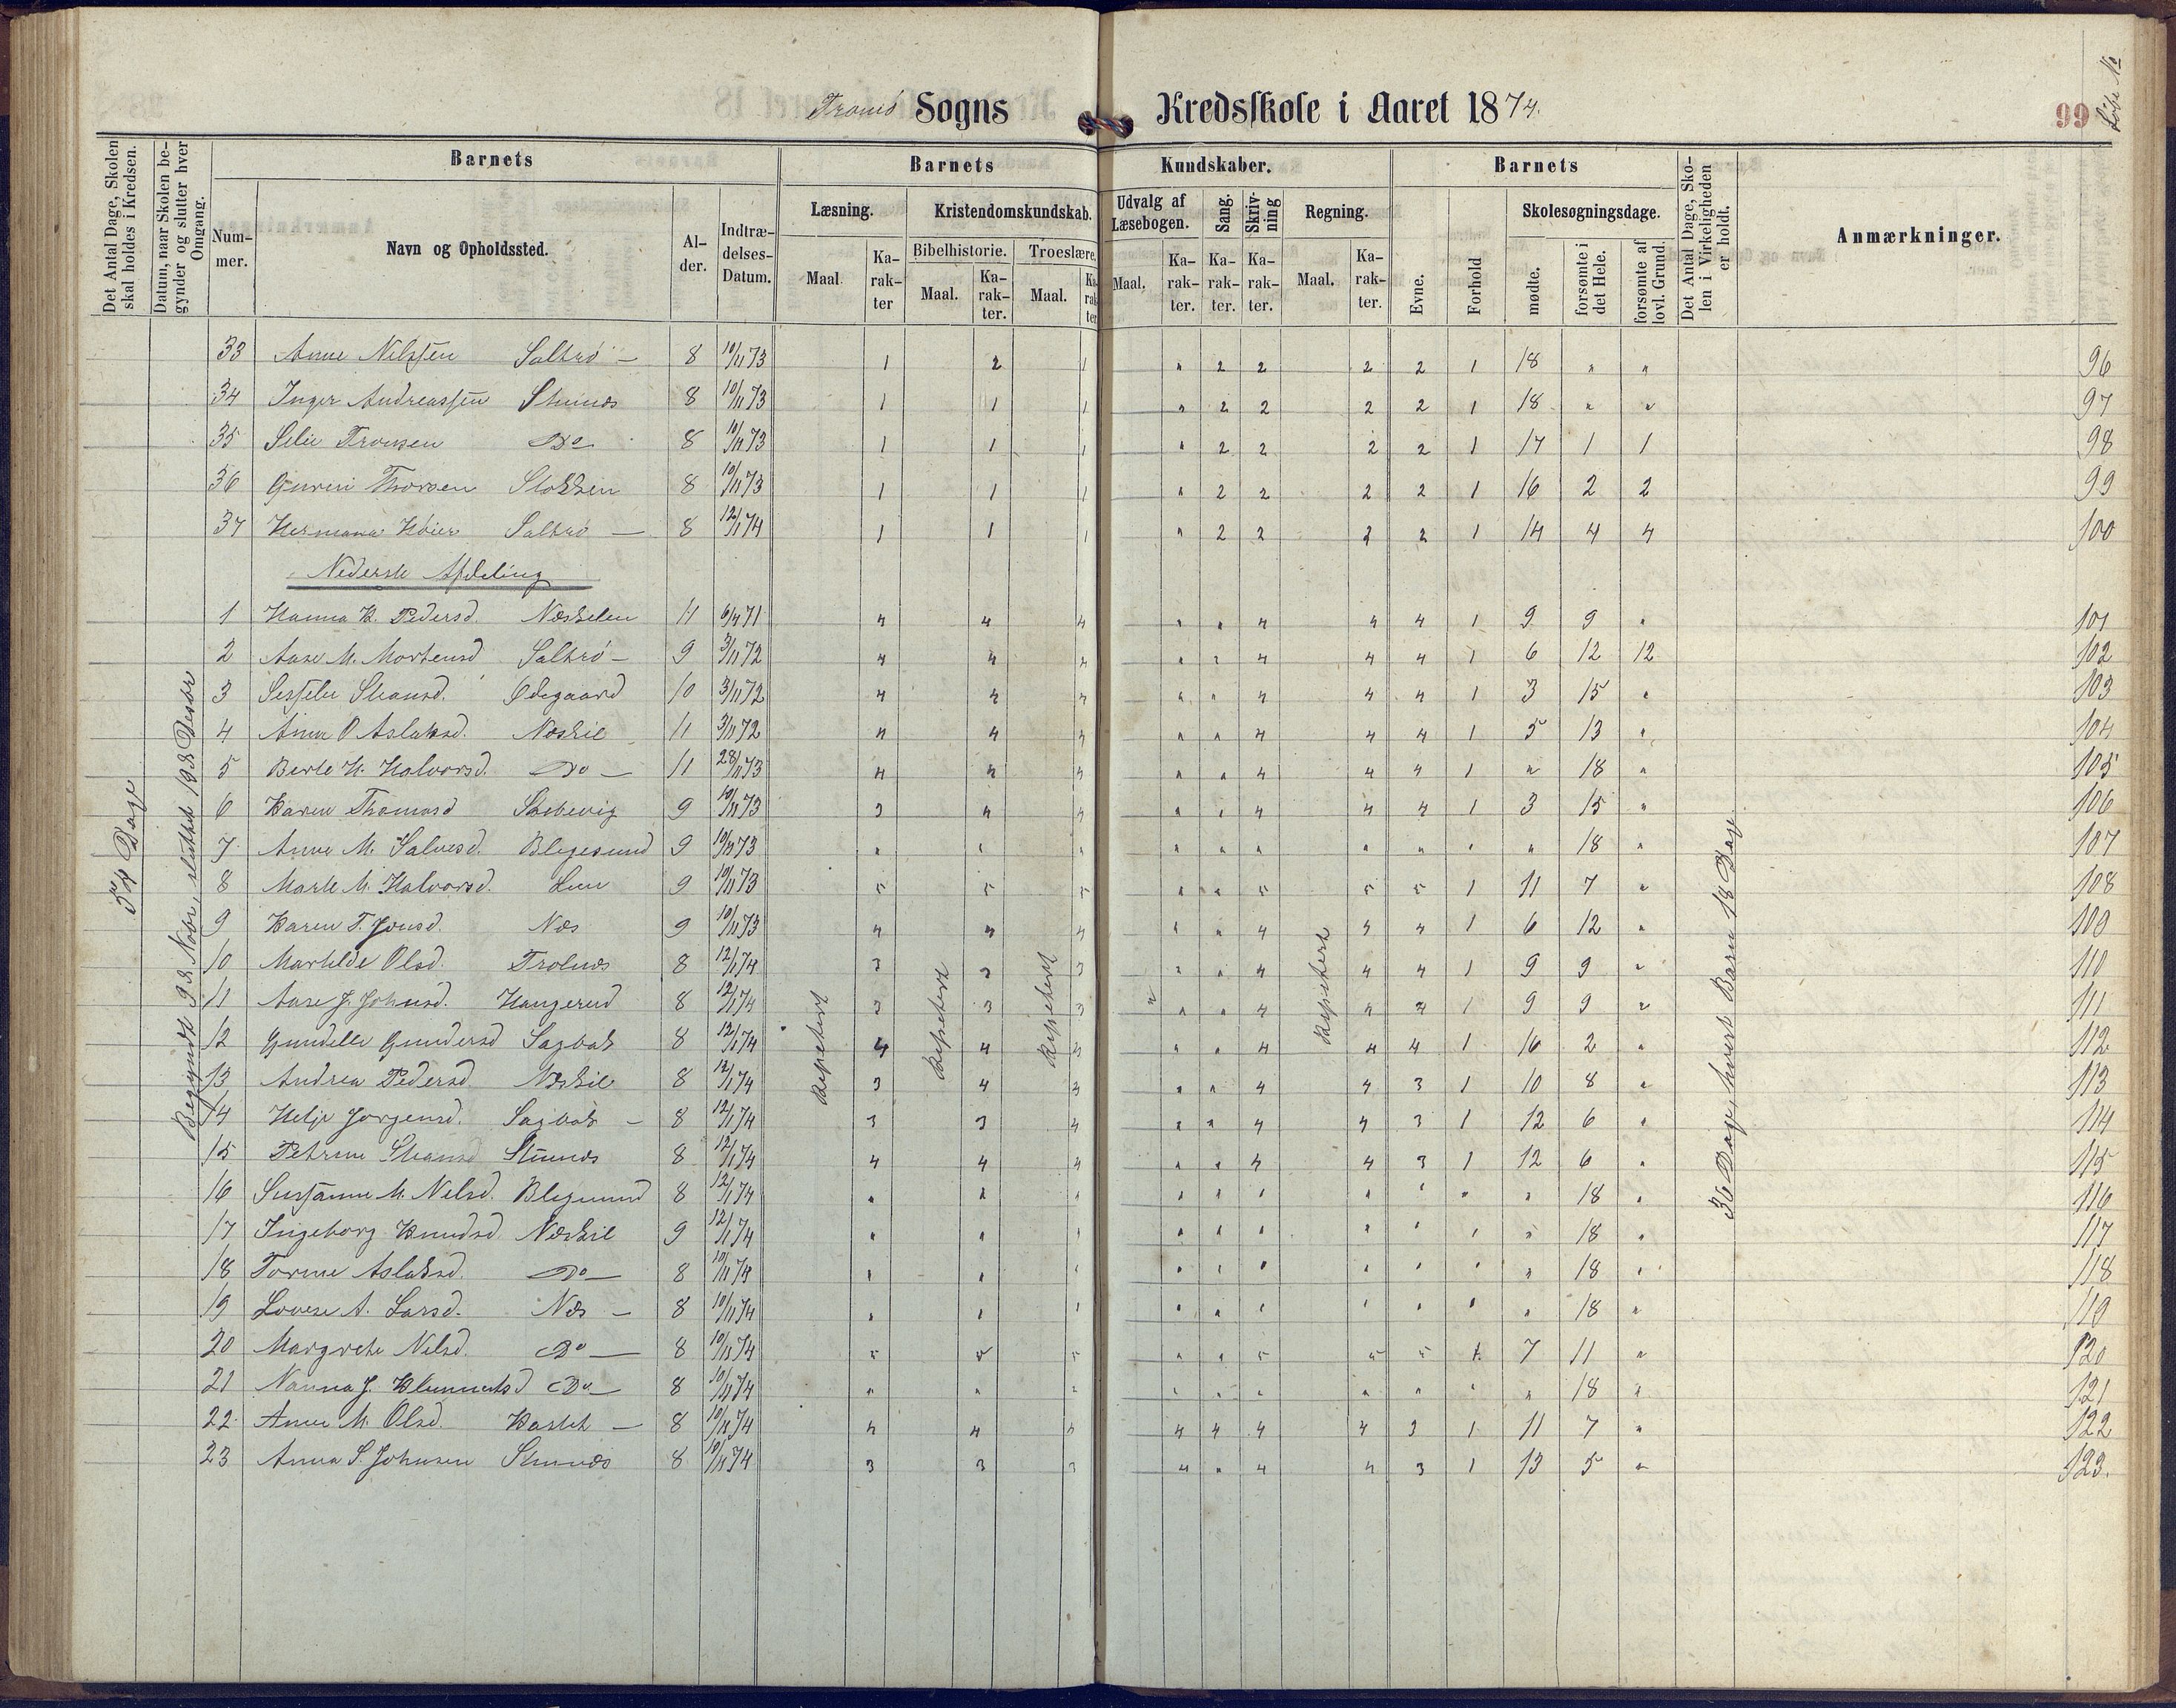 Tromø Sogns Kredsskole i Aaret 1874.
99
Løbe No
Det Antal Dage, Skolen skal holdes i Kredsen.
Datum, naar Skolen begynder og slutter hver Omgang.
Barnets
Barnets Kundskaber.
Barnets
Det Antal Dage, Skolen i Virkeligheden er holdt.
Anmærkninger.
Nummer.
Navn og Opholdssted.
Alder.
Indtrædelses-Datum.
Læsning.
Kristendomskundskab.
Udvalg af Læsebogen.
Sang.
Skrivning
Regning.
Evne.
Forhold
Skolesøgningsdage.
Bibelhistorie.
Troeslære.
Maal. Karakter
Maal. Karakter.
Maal. Karakter
Maal. Karakter.
Karakter.
Karakter.
Maal. Karakter.
mødte.
forsømte i det Hele.
forsømte af lovl. Grund.
33 Anne Nilssen Saltrø — 8 10/11 73 1 2 1 " 2 2 2 2 1 18 " " 96
34 Inger Andreassen 8 10/11 73 1 1 1 " 2 2 2 2 1 18 " " 97
35 Do 8 10/11 73 1 1 1 " 2 2 2 2 1 17 1 1 98
36 Thorsen Stokken 8 10/11 73 1 1 1 " 2 2 2 2 1 16 2 2 99
37 Hermana Høier Saltrø — 8 12/1 74 1 1 1 " 2 2 2 2 1 14 4 4 100
Nederste Afdeling
1 Hanna K. Pedersd. Næskilen 11 6/4 71 4 4 4 " " 4 4 4 1 9 9 " 101
2 Aase M. Mortensd Saltrø — 9 3/11 72 4 4 4 " " 4 4 4 1 6 12 12 102
3 Odegaard 10 3/11 72 4 4 4 " " 4 4 4 1 3 15 " 103
4 Anna O Aslaksd. Næskil 11 3/11 72 4 4 4 " " 4 4 4 1 5 13 " 104
5 Berte H. Halvorsd. Do — 11 28/11 73 4 4 4 " " 4 4 4 1 " 18 " 105
6 Karen Thomasd Skibevig 9 10/11 73 3 4 4 " " 4 4 4 1 3 15 " 106
7 Anne M. Salvesd. Blegesund 9 10/11 73 " " " " " " " " " " 18 " 107
8 Marte M. Halvorsd. Lun 9 10/11 73 5 5 5 " " 5 5 5 1 11 7 " 108
9 Karen T. Jonsd. Næs 9 10/11 73 4 4 4 " " 4 4 4 1 6 12 " 109
10 Mathilde Olsd. Trolnæs 8 12/1 74 3 3 3 " " 4 4 4 1 9 9 " 110
11 Aase J. Johnsd. Hangerud 8 12/1 74 3 3 3 " " 4 4 4 1 9 9 " 111
12 Gundelle Gundersd Sagbak 8 12/1 74 4 4 4 " " 4 4 4 1 16 2 " 112
13 Andrea Pedersd Næskil 8 12/1 74 3 4 3 " " 4 4 3 1 10 8 " 113
14 Helje Jørgensd. Sagbak — 8 12/1 74 3 3 4 " " 4 4 3 1 12 6 " 114
15 Petrine 8 12/1 74 4 4 4 " " 4 4 3 1 12 6 " 115
16 Susanne M. Nilsd. Blegesund 8 12/1 74 " " " " " " " " " " 18 " 116
17 Ingeborg Knudsd Næskil 9 12/1 74 " " " " " " " " " " 18 " 117
18 Torine Aslaksd. Do — 8 10/11 74 " " " " " " " " " " 18 " 118
19 Lovise A. Larsd. Næs — 8 10/11 74 " " " " " " " " " " 18 " 119
20 Margrethe Nilsd. Do — 8 10/11 74 5 5 5 " " 5 5 5 1. 7 11 " 120
21 Nanna J. Do — 8 10/11 74 " " " " " " " " " " 18 " 121
22 Anne M. Olsd. — 8 10/11 74 4 4 4 4 4 4 4 3 1 11 7 " 122
23 Anna S. Johnsen 8 10/11 74 3 3 3 4 " 4 4 3 1 13 5 " 123.
54 Dage
Begyndt 9de Novbr, sluttet 19de Decbr
Repetert
Repetert
Repetert
"
Repetert
36 Dage, hvert Barn 18 Dage